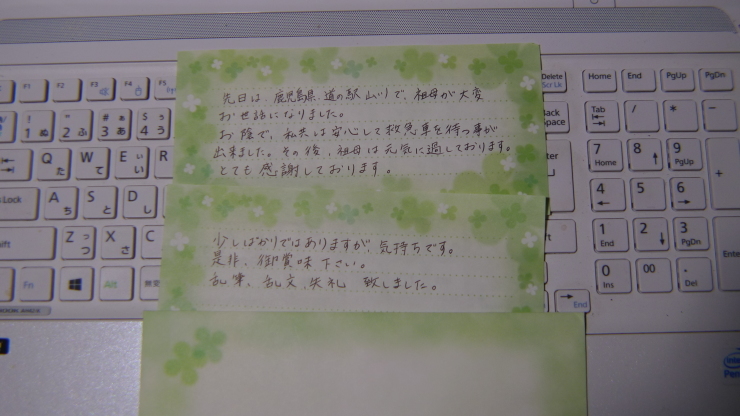 先日は、鹿児島県 道の駅 山川で、祖母が大変
お世話になりました。
お陰で、私共は安心して救急車を待つ事が
出来ました。その後、祖母は元気に過しております。
とても感謝しております。
少しばかりではありますが、気持ちです。
是非、御賞味下さい。
乱筆、乱文、失礼 致しました。
F1 F2 F3 F4 F5
Delete
ScrLk
Home End PgUp PgDn
Tab / * -
7 Home 8 9 PgUp +
4 5 6
1 End 2 3 PgDn Enter
0 Ins 00 . Del
End
Q た W て E い R
A ち S と D し
Z つ X さ C
Alt 無変